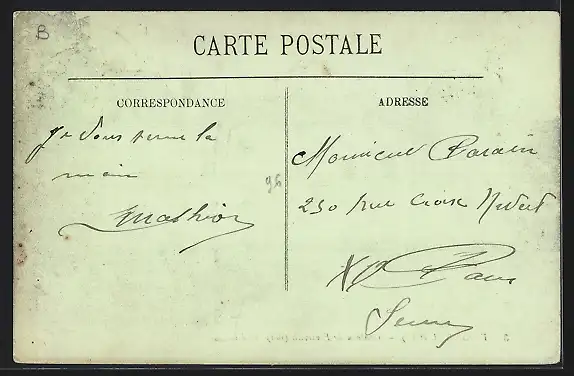 B
CARTE POSTALE
CORRESPONDANCE
ADRESSE
Je vous serre la
main
Mathior
96
Monsieur Parain
230 rue Croix Nivert
XV Paris
Seine